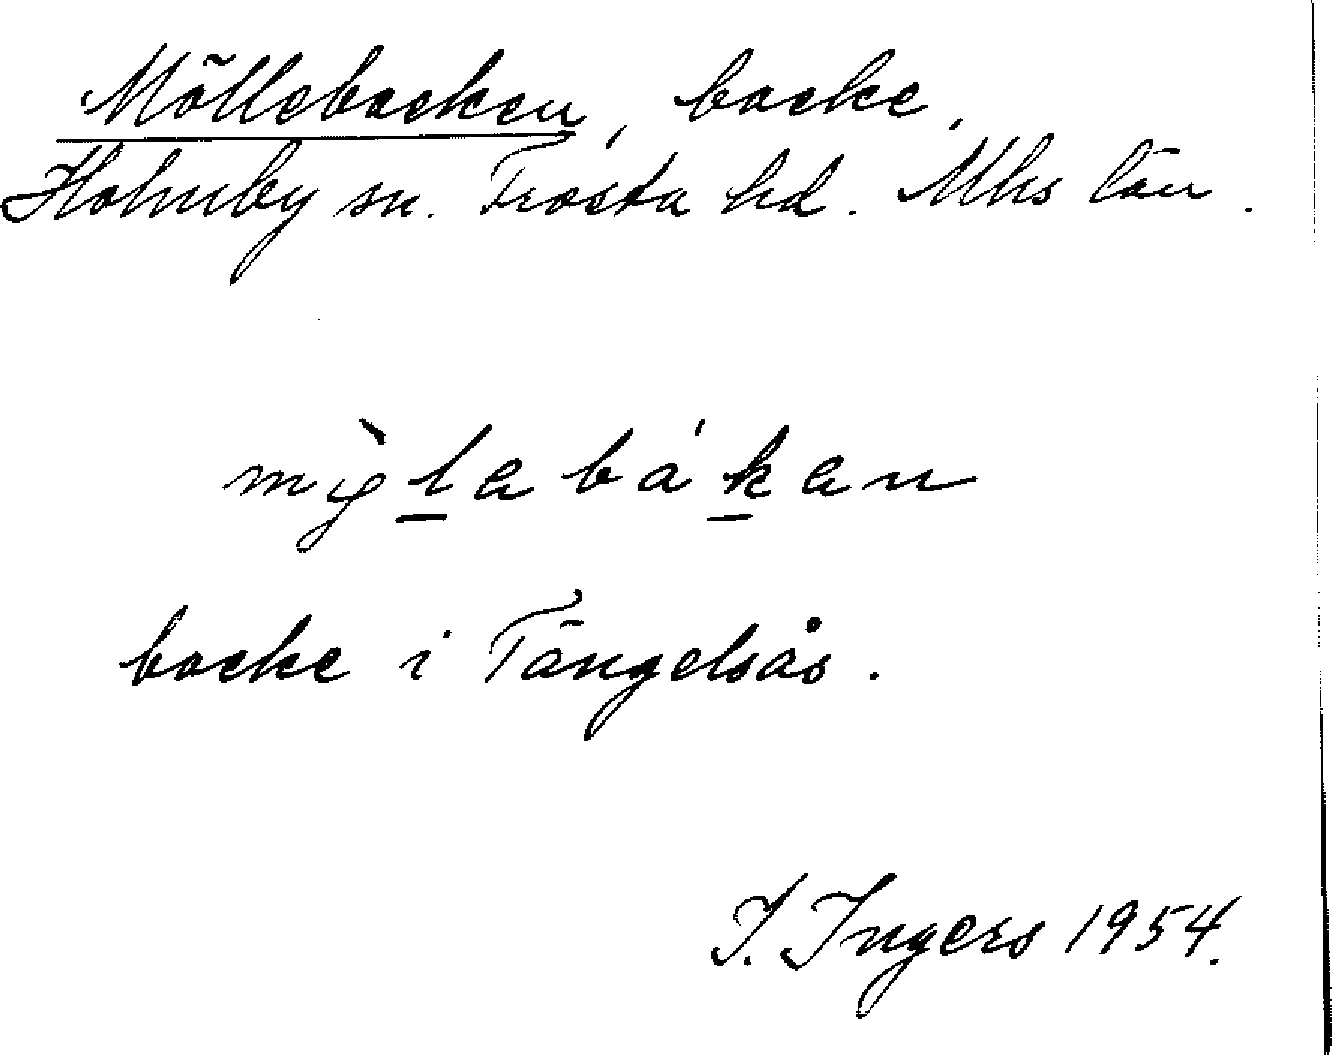 Möllebacken, backe,
Holmby sn. Frosta hd. Mhs län.
backe i Tängelsås.
I. Ingers 1954.